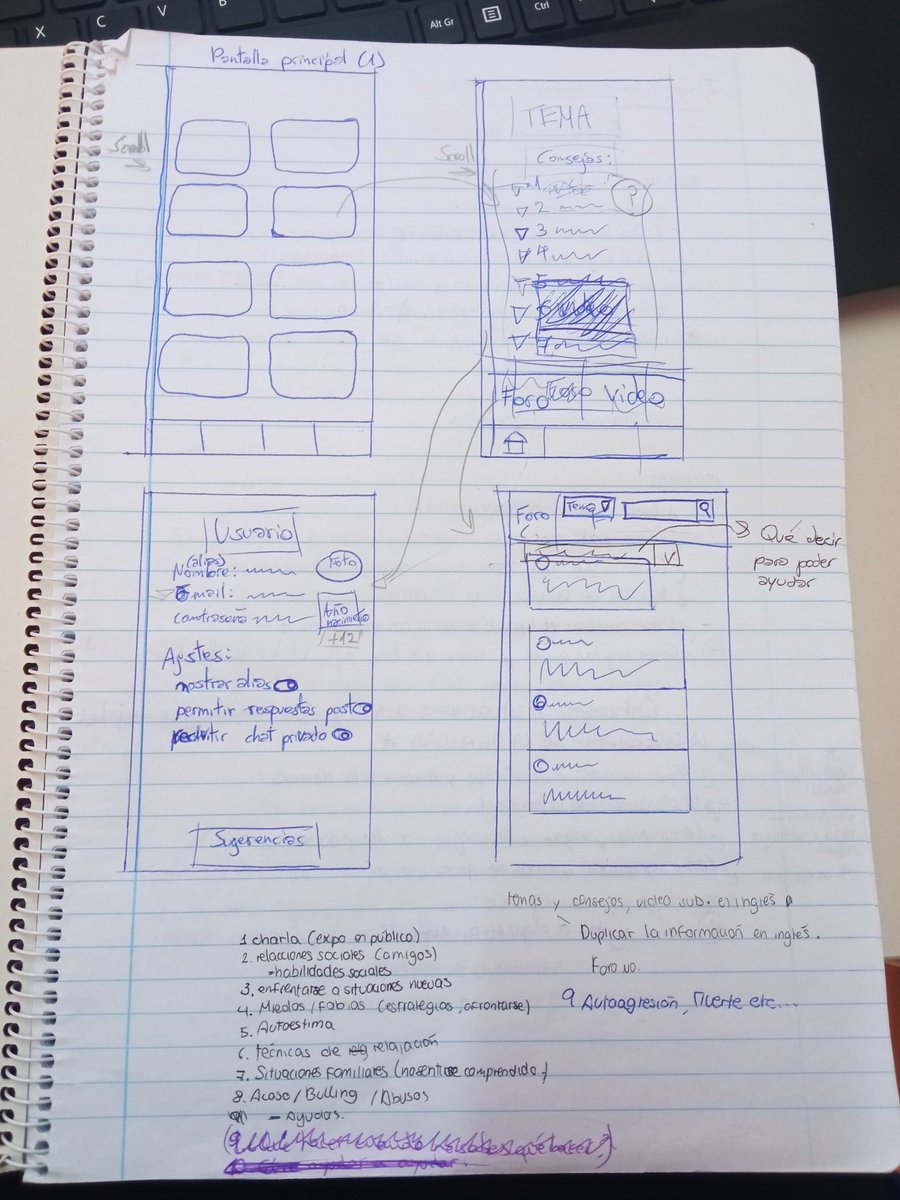 X
C
V
Alt Gr
Ctrl
Pantalla principal (1)
Scroll
TEMA
Consejos:
1
2
3
4
5
6 video
7
?
Scroll
Foro Foro Video
Usuario
(alias)
Nombre:
Email:
contraseña
Foto
Año
nacimiento
+12
Ajustes:
mostrar alias
permitir respuestas post
permitir chat privado
Sugerencias
Foro
Tema
Qué decir
para poder
ayudar
1 charla (expo en público)
2. relaciones sociales (amigos)
habilidades sociales
3. enfrentarse a situaciones nuevas
4. Miedos / fobias (estrategias, afrontarse)
5. Autoestima
6. técnicas de relajación
7. Situaciones Familiares (no sentirse comprendido)
8. Acoso / Bulling / Abusos
- Ayudas.
temas y consejos, video sub. en inglés
Duplicar la información en inglés.
Foro no.
9 Autoagresión, Muerte etc...